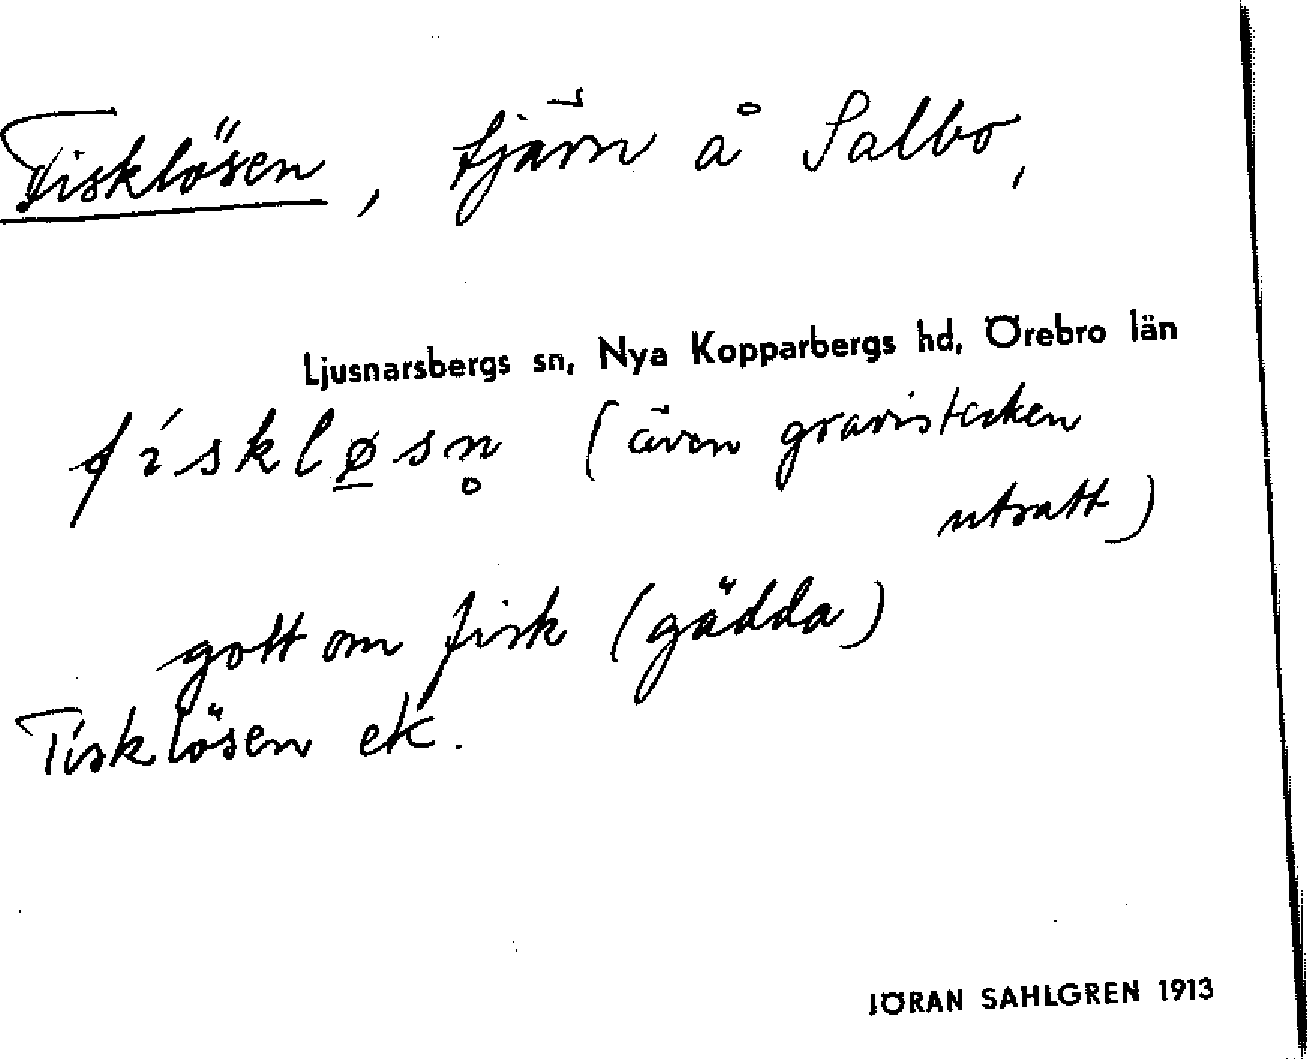 Fisklösen, tjärn å Salbo,
Ljusnarsbergs sn, Nya Kopparbergs hd, Örebro län
físklø̠sn̥ (även gravistecken
utsatt)
gott om fisk (gädda)
Fisklösen ek.
JÖRAN SAHLGREN 1913